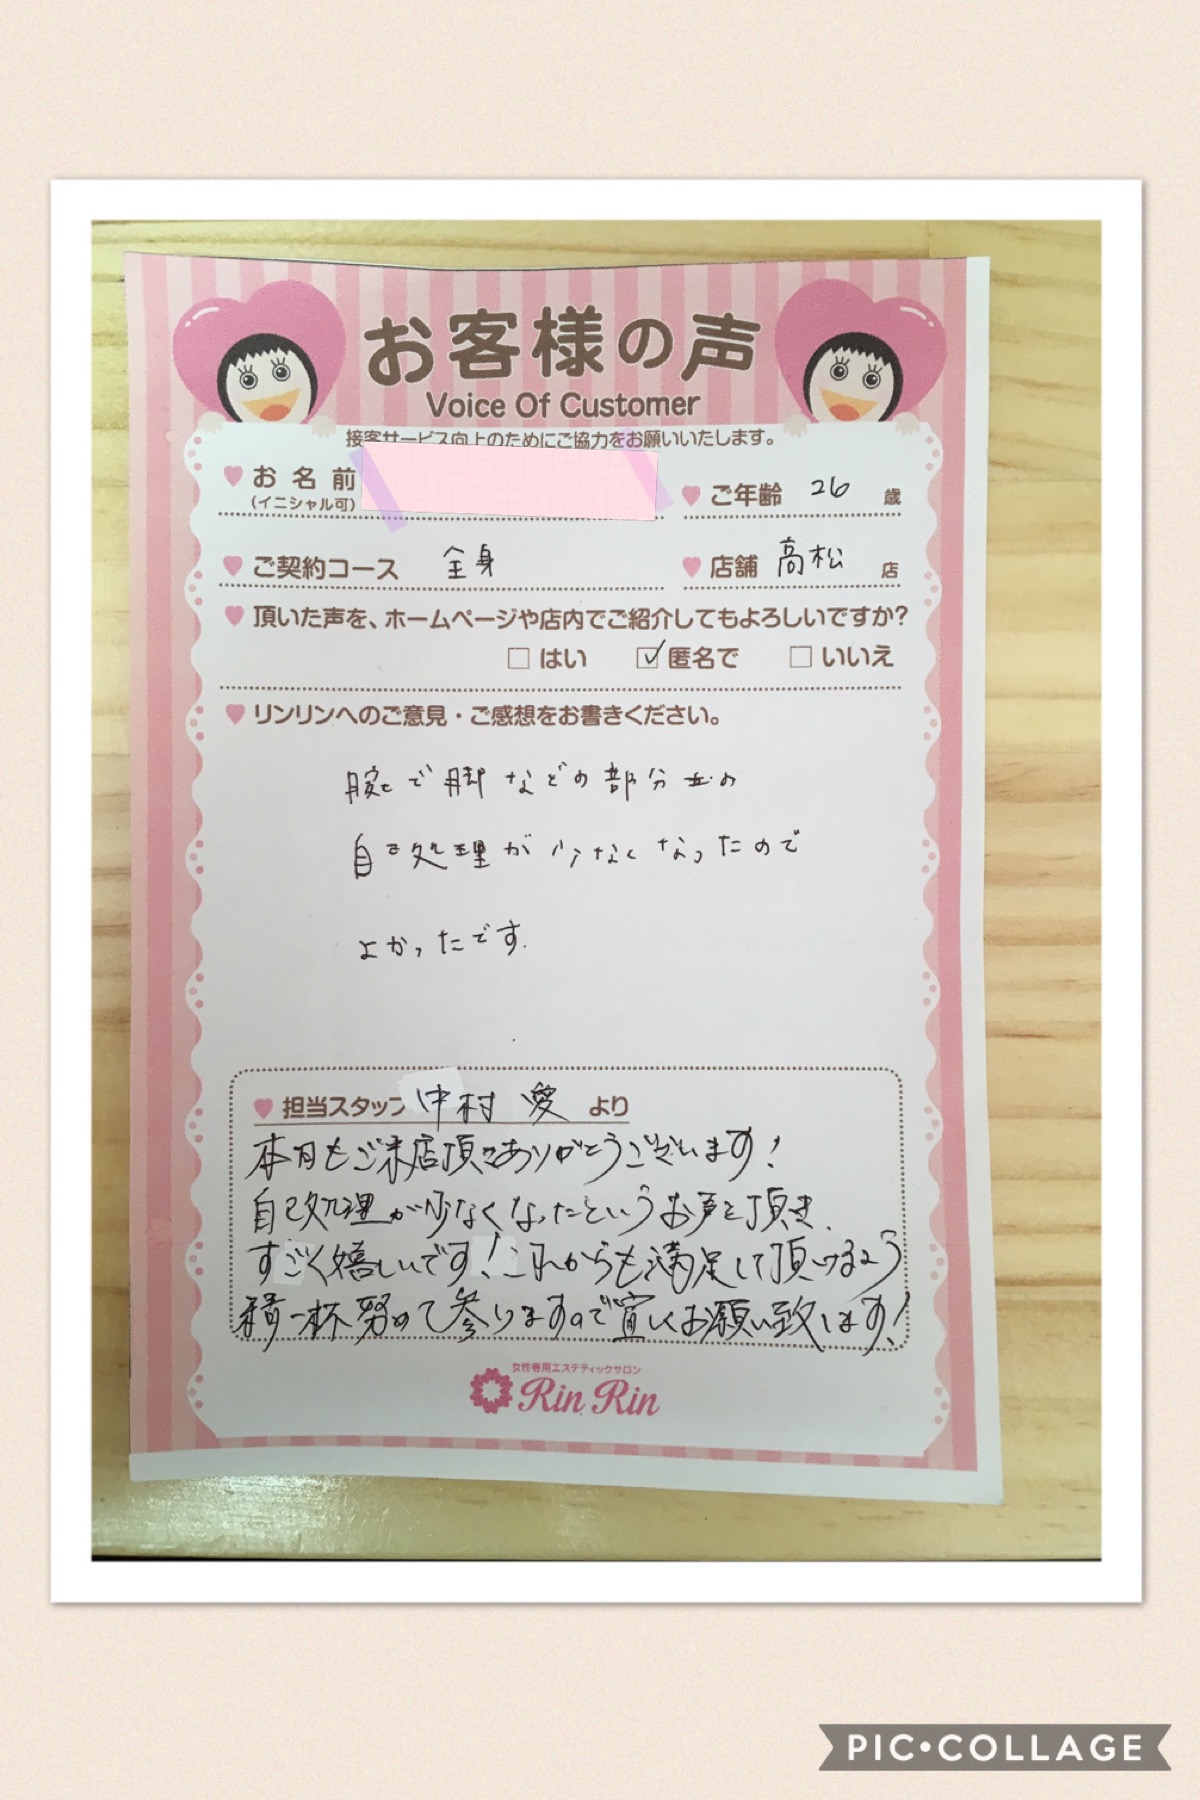 お客様の声
Voice Of Customer
接客サービス向上のためにご協力をお願いいたします。
お名前
(イニシャル可)
ご年齢 26 歳
ご契約コース 全身
店舗 高松 店
頂いた声を、ホームページや店内でご紹介してもよろしいですか?
はい ✓匿名で いいえ
リンリンへのご意見・ご感想をお書きください。
腕で脚などの部分の
自己処理が少なくなったので
よかったです.
担当スタッフ 中村 愛 より
本日もご来店頂きありがとうございます!
自己処理が少なくなったというお声を頂き、
すごく嬉しいです!これからも満足して頂けるよう
精一杯努めて参りますので宜しくお願い致します!
女性専用エステティックサロン
Rin Rin
PIC•COLLAGE